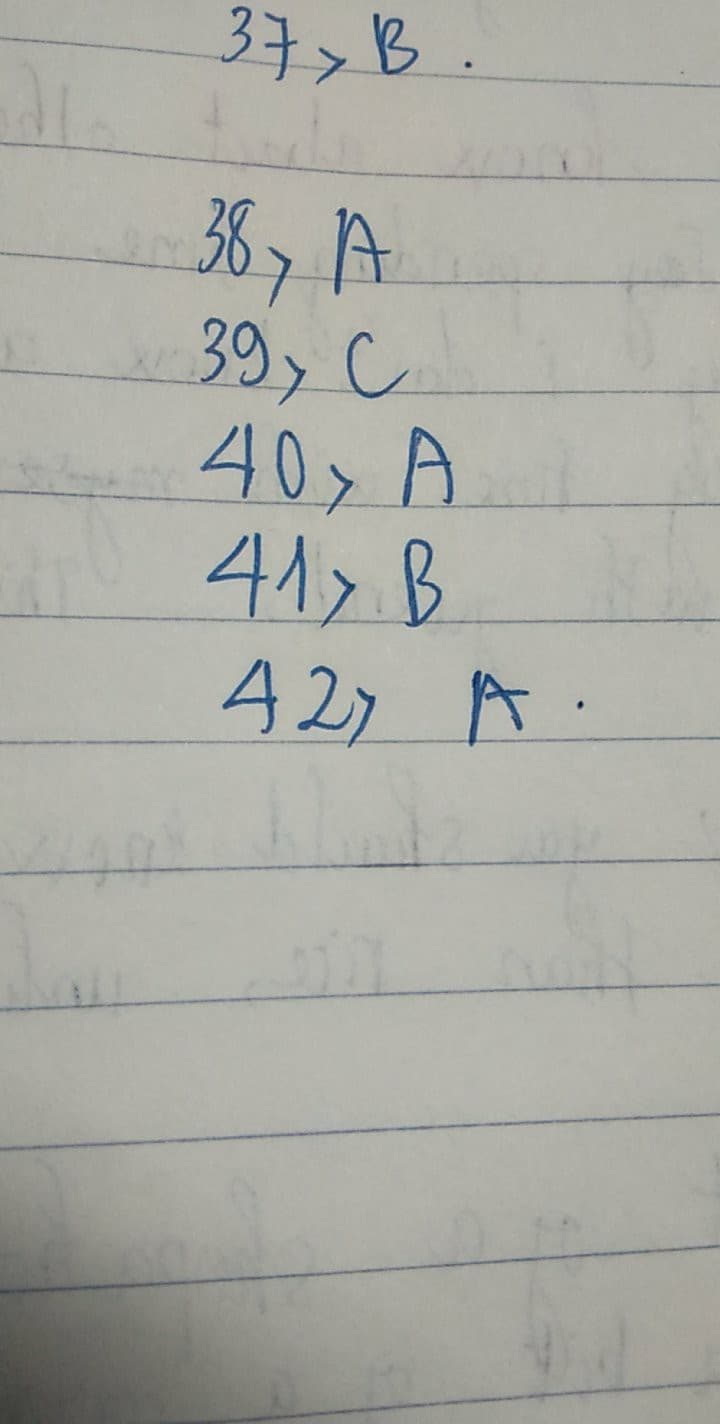 37, B.
38, A
39, C
40, A
41, B
42, A.